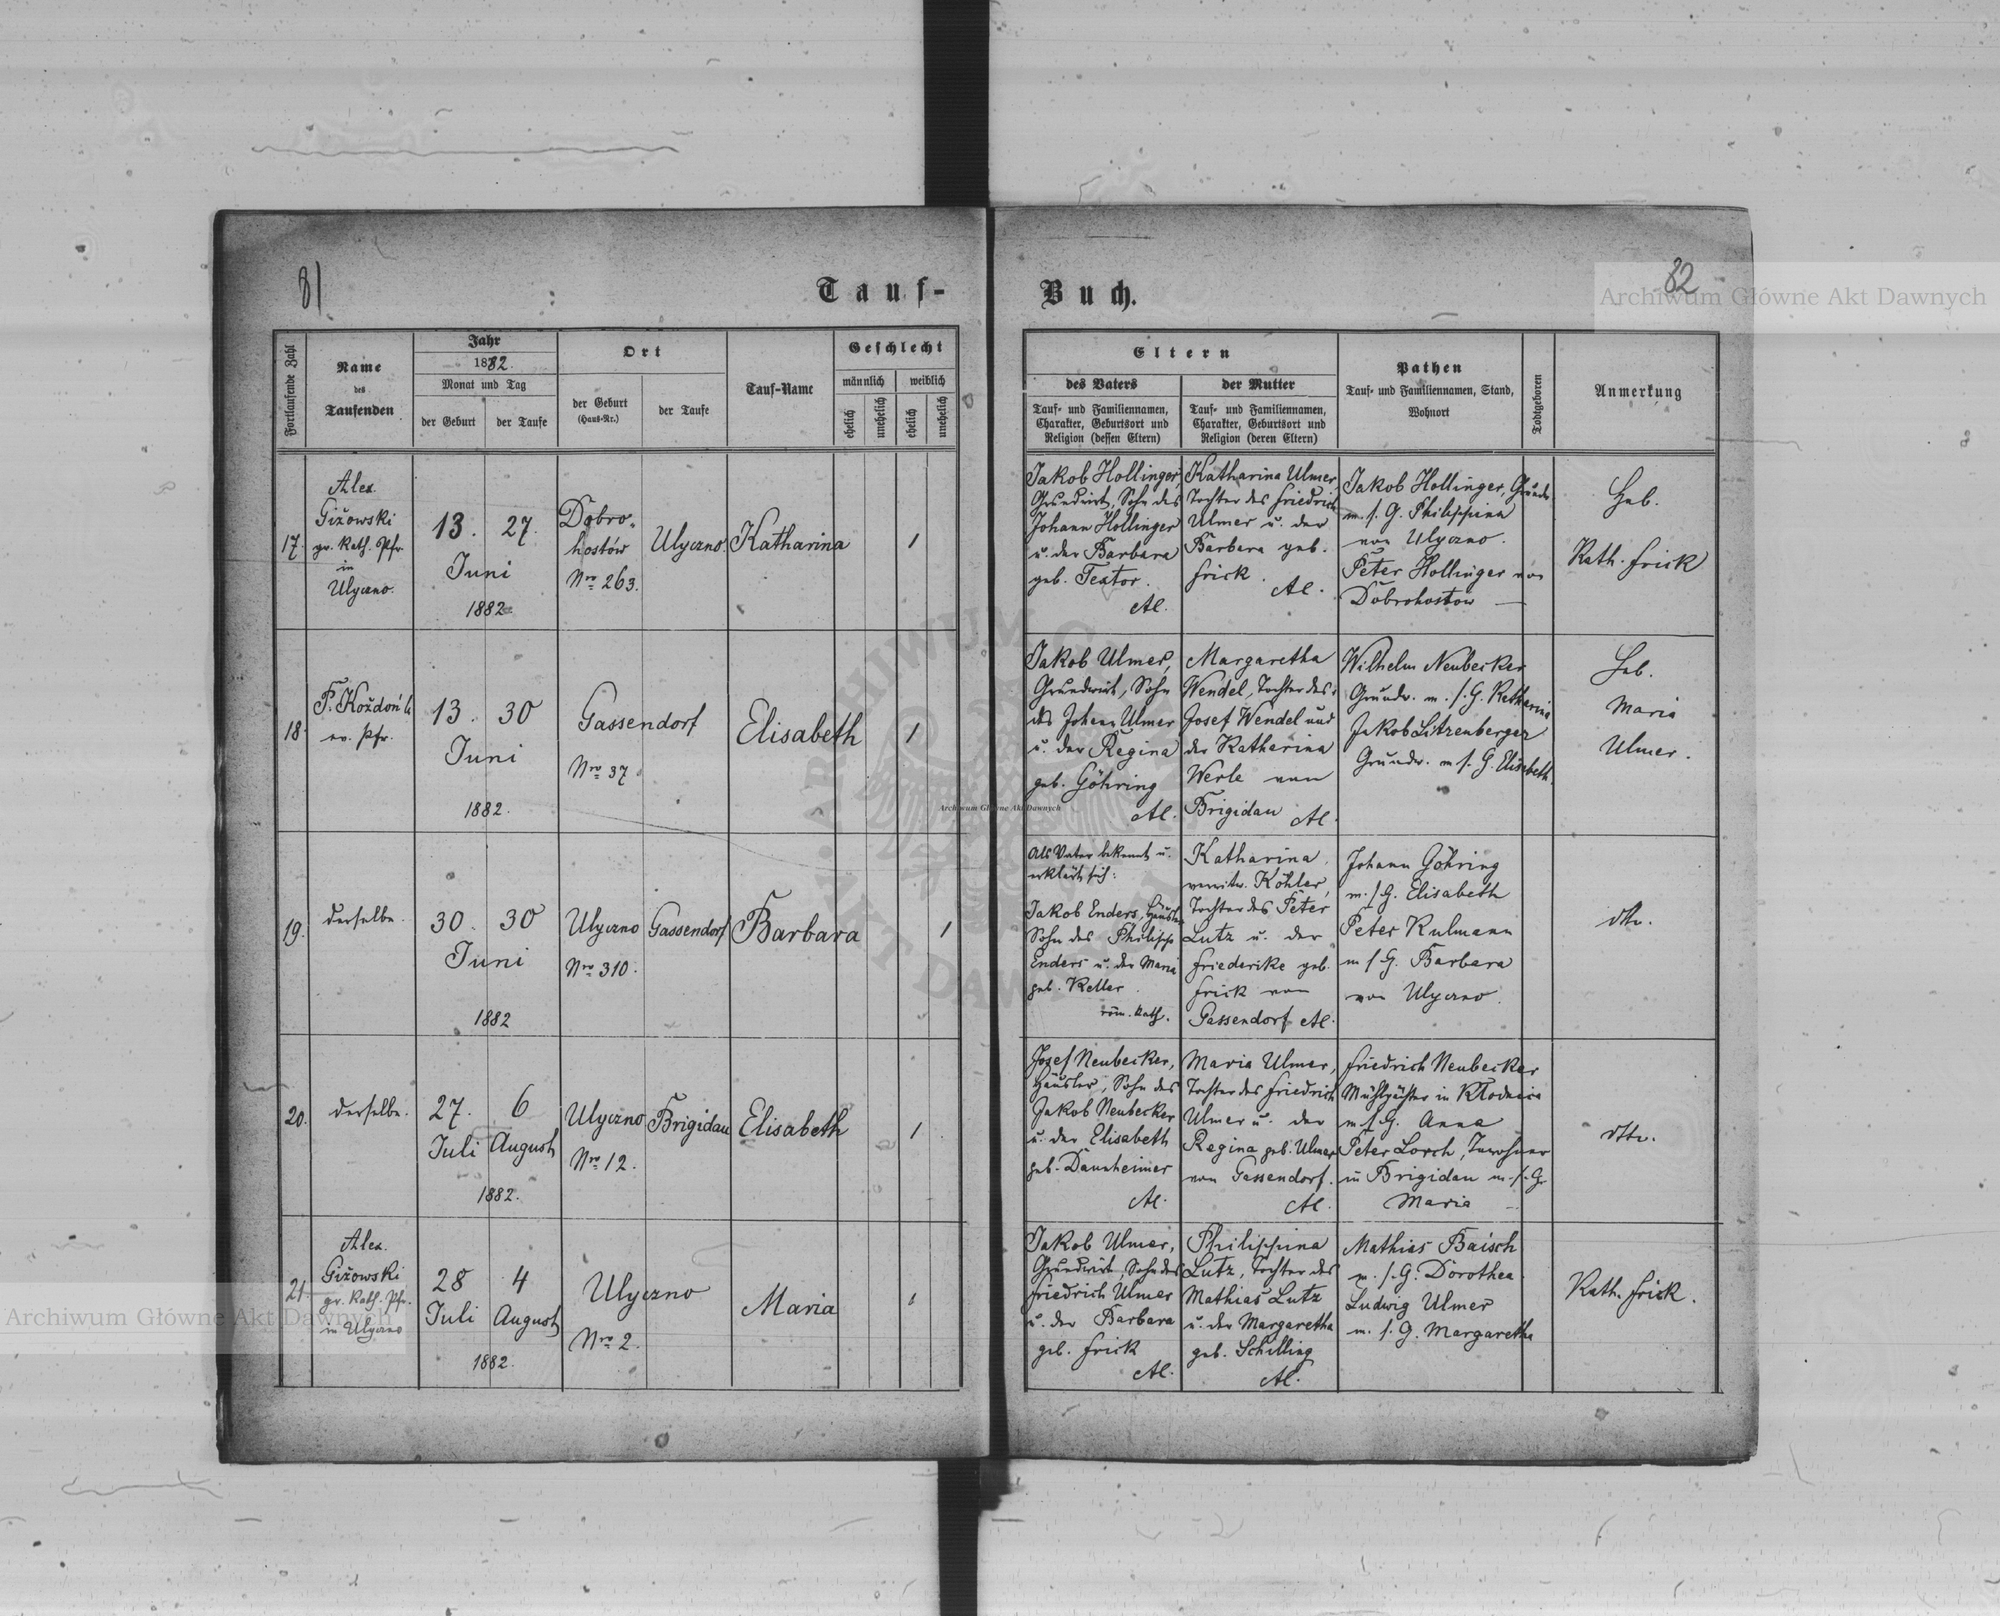 81
Tauf-
Buch.
82
Fortlaufende Zahl
Name
des
Taufenden
Jahr
1882.
Monat und Tag
der Geburt
der Taufe
Ort
der Geburt
(Haus-Nr.)
der Taufe
Tauf-Name
Geschlecht
männlich
weiblich
ehelich
unehelich
ehelich
unehelich
Eltern
des Vaters
Tauf- und Familiennamen,
Charakter, Geburtsort und
Religion (dessen Eltern)
der Mutter
Tauf- und Familiennamen,
Charakter, Geburtsort und
Religion (deren Eltern)
Pathen
Tauf- und Familiennamen, Stand,
Wohnort
Todtgeboren
Anmerkung
17.
Alex.
Giżowski
gr. Kath. Pfr.
in
Ulyczno.
13.
27.
Juni
1882.
Dobro-
hostów
Nro 263.
Ulyczno.
Katharina
1
Jakob Hollinger,
Grundwirt, Sohn des
Johann Hollinger
u. der Barbara
geb. Textor.
AC.
Katharina Ulmer,
Tochter des Friedrich
Ulmer u. der
Barbara geb.
Frick.
AC.
Jakob Hollinger, Grundw.
m. s. G. Philippina
von Ulyczno.
Peter Hollinger von
Dobrohostow —
Heb.
Kath. Frick
18.
ev. Pfr.
13.
30
Juni
1882.
Gassendorf
Nro 37
Elisabeth
1
Jakob Ulmer,
Grundwirt, Sohn
des Johann Ulmer
u. der Regina
geb. Göhring
AC.
Margaretha
Wendel, Tochter des
Josef Wendel und
der Katharina
Werle von
Brigidau
AC.
Wilhelm Neubecker
Grundw. m. s. G. Katharina
Jakob Litzenberger
Grundw. m. s. G. Elisabeth
Heb.
Maria
Ulmer.
19.
derselbe.
30.
30
Juni
1882
Ulyczno
Nro 310.
Gassendorf
Barbara
1
Als Vater bekennt u.
erklärt sich:
Jakob Enders, Häusler
Sohn des Philipp
Enders u. der Maria
geb. Keller.
röm. kath.
Katharina
verwitw. Köhler,
Tochter des Peter
Lutz u. der
Friederike geb.
Frick von
Gassendorf AC.
Johann Göhring
m. s. G. Elisabeth
Peter Kulmann
m. s. G. Barbara
von Ulyczno.
dtto.
20.
derselbe.
27.
6
Juli
August
1882.
Ulyczno
Nro 12.
Brigidau
Elisabeth
1
Josef Neubecker,
Häusler, Sohn des
Jakob Neubecker
u. der Elisabeth
geb. Dannheimer
AC.
Maria Ulmer,
Tochter des Friedrich
Ulmer u. der
Regina geb. Ulmer
von Gassendorf.
AC.
Friedrich Neubecker
Mühlpächter in
m. s. G. Anna
Peter Lorch, Inwohner
in Brigidau m. s. G.
Maria
dtto.
21.
Alex.
Giżowski
gr. Kath. Pfr.
in Ulyczno
28
4
Juli
August
1882.
Ulyczno
Nro 2.
Maria
1
Jakob Ulmer,
Grundwirt, Sohn des
Friedrich Ulmer
u. der Barbara
geb. Frick
AC.
Philippina
Lutz, Tochter des
Mathias Lutz
u. der Margaretha
geb. Schilling
AC.
Mathias Baisch
m. s. G. Dorothea
Ludwig Ulmer
m. s. G. Margaretha
Kath. Frick.
Archiwum Główne Akt Dawnych
Archiwum Główne Akt Dawnych
Archiwum Główne Akt Dawnych